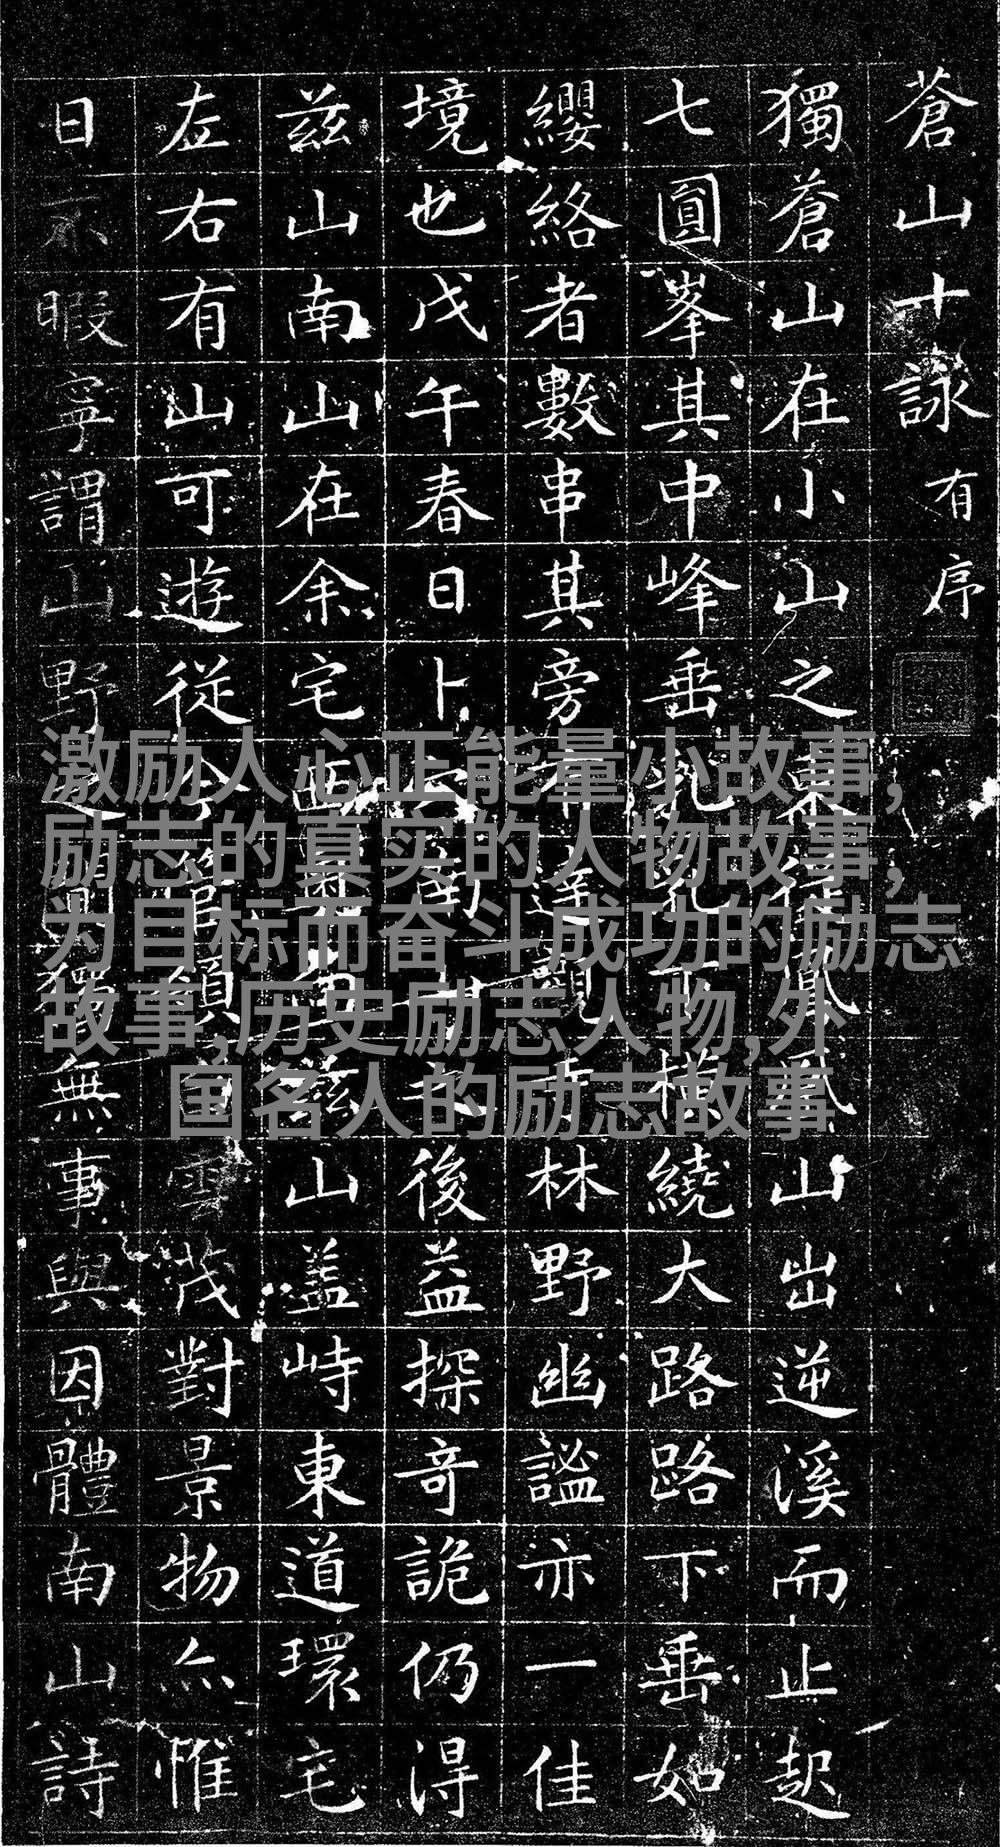 蒼山十詠 有序
獨蒼山在小山之東山出逆溪而止起
七圓峯其中峰垂乳下橫繞大路路下垂如
纓絡者數串其旁達觀林野幽謐亦一佳
境也戊午春日卜後益探奇詭仍得
兹山南山在余宅西兹山盖峙東道環宅
左右有山可遊從今領雲茂對景物亦惟
日不暇寧謂山野之閒獨無事與因體南山詩
激励人心正能量小故事,
励志的真实的人物故事,
为目标而奋斗成功的励志
故事,历史励志人物,外
国名人的励志故事